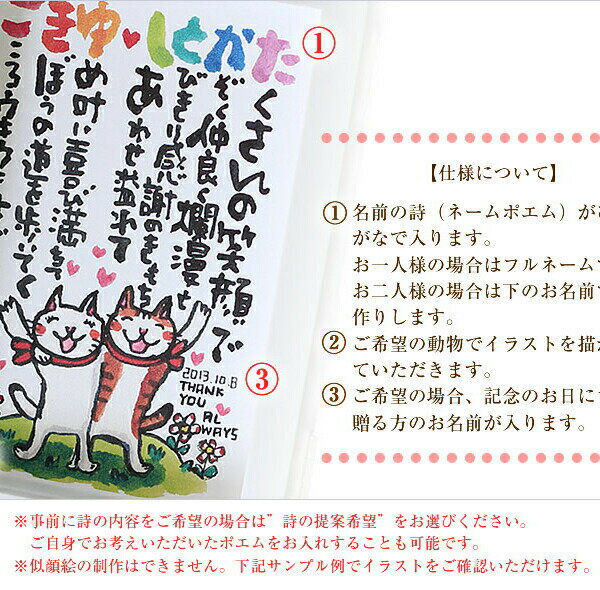 ごきゆ♥しとかた
①
くさんの笑顔で
ぞく仲良く爛漫と
びきり感謝のきもち
あわせ溢れて
め叶い喜び満ち
ぼうの道を歩いてく
2013.10.8
THANK
YOU AL
WAYS
③
【仕様について】
① 名前の詩（ネームポエム）が
がなで入ります。
お一人様の場合はフルネーム
お二人様の場合は下のお名前
作りします。
② ご希望の動物でイラストを描
ていただきます。
③ ご希望の場合、記念のお日に
贈る方のお名前が入ります。
※事前に詩の内容をご希望の場合は”詩の提案希望”をお選びください。
ご自身でお考えいただいたポエムをお入れすることも可能です。
※似顔絵の制作はできません。下記サンプル例でイラストをご確認いただけます。